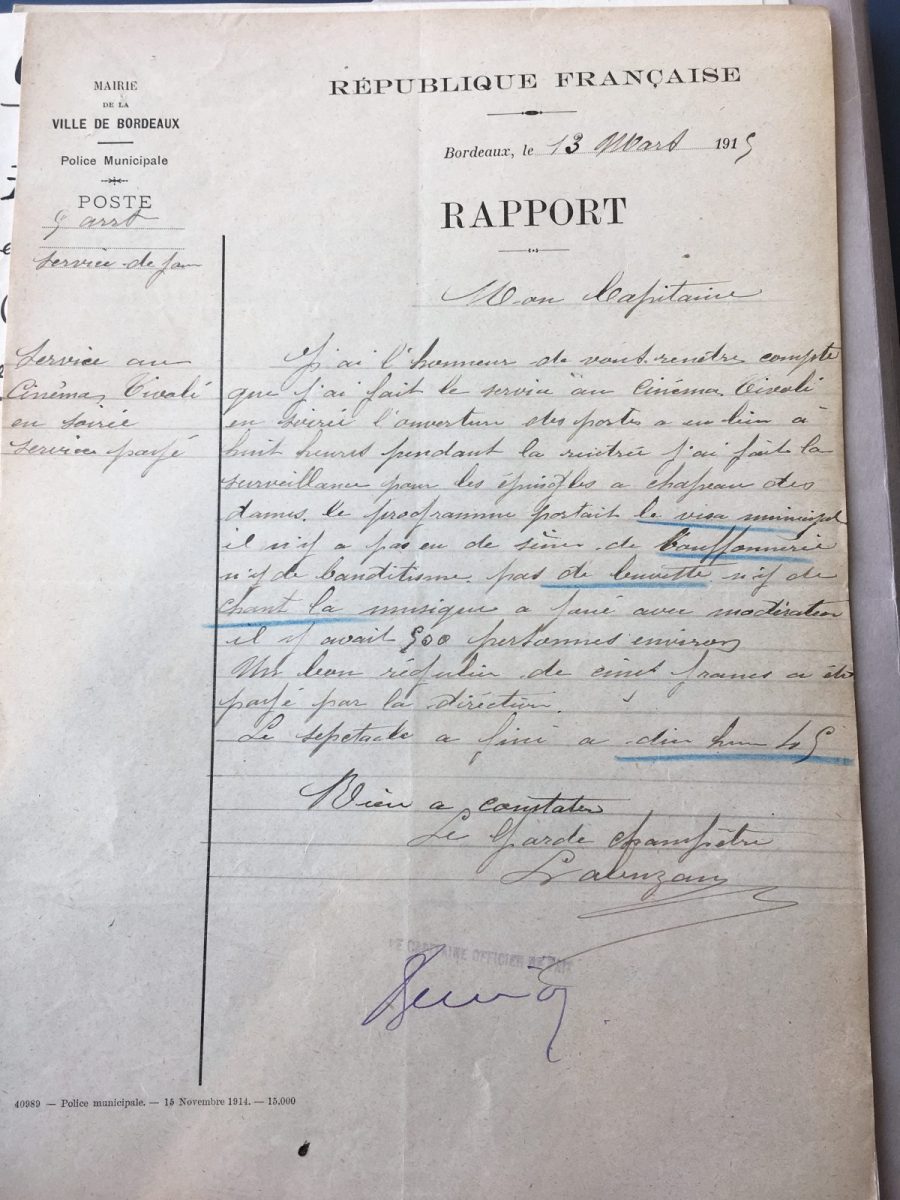 MAIRIE
DE LA
VILLE DE BORDEAUX
Police Municipale
POSTE
5 arrt
service de
RÉPUBLIQUE FRANÇAISE
Bordeaux, le 13 Mars 1915
RAPPORT
Mon Capitaine
Service au
Cinéma Tivoli
en soirée
service payé
J'ai l'honneur de vous rendre compte
que j'ai fait le service au cinéma Tivoli
en soirée l'ouverture des portes a eu lieu à
huit heures pendant la rentrée j'ai fait la
surveillance pour les épingles a chapeau des
dames. le programme portait le visa municipal
il n'y a pas eu de de bouffonnerie
n'y de banditisme pas de buvette n'y de
chant la musique a joué avec modération
il y avait 500 personnes environ
Un bon régulier de cinq francs a été
payé par la diréction.
Le septacle a fini a dix heure 45
Rien a constater
Le Garde champêtre
LE CAPITAINE OFFICIER DE PAIX
40989 — Police municipale. — 15 Novembre 1914. — 15,000